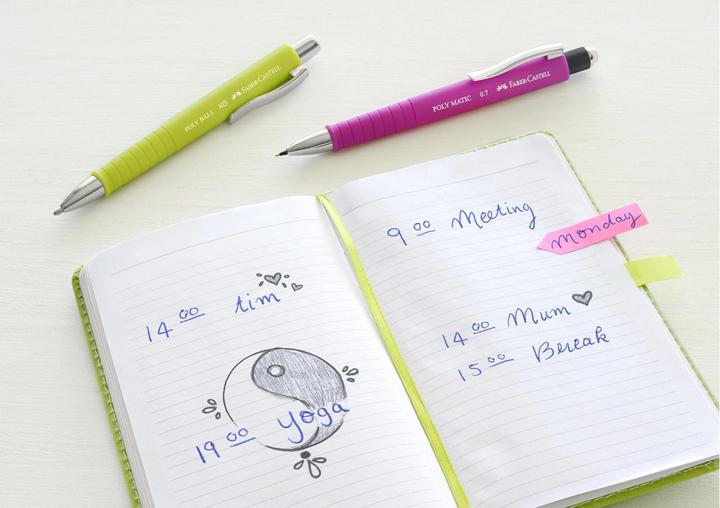 POLY BALL XB FABER-CASTELL
POLY MATIC 0.7 FABER-CASTELL
14 00 tim
19 00 yoga
9 00 Meeting
Monday
14 00 Mum
15 00 Break